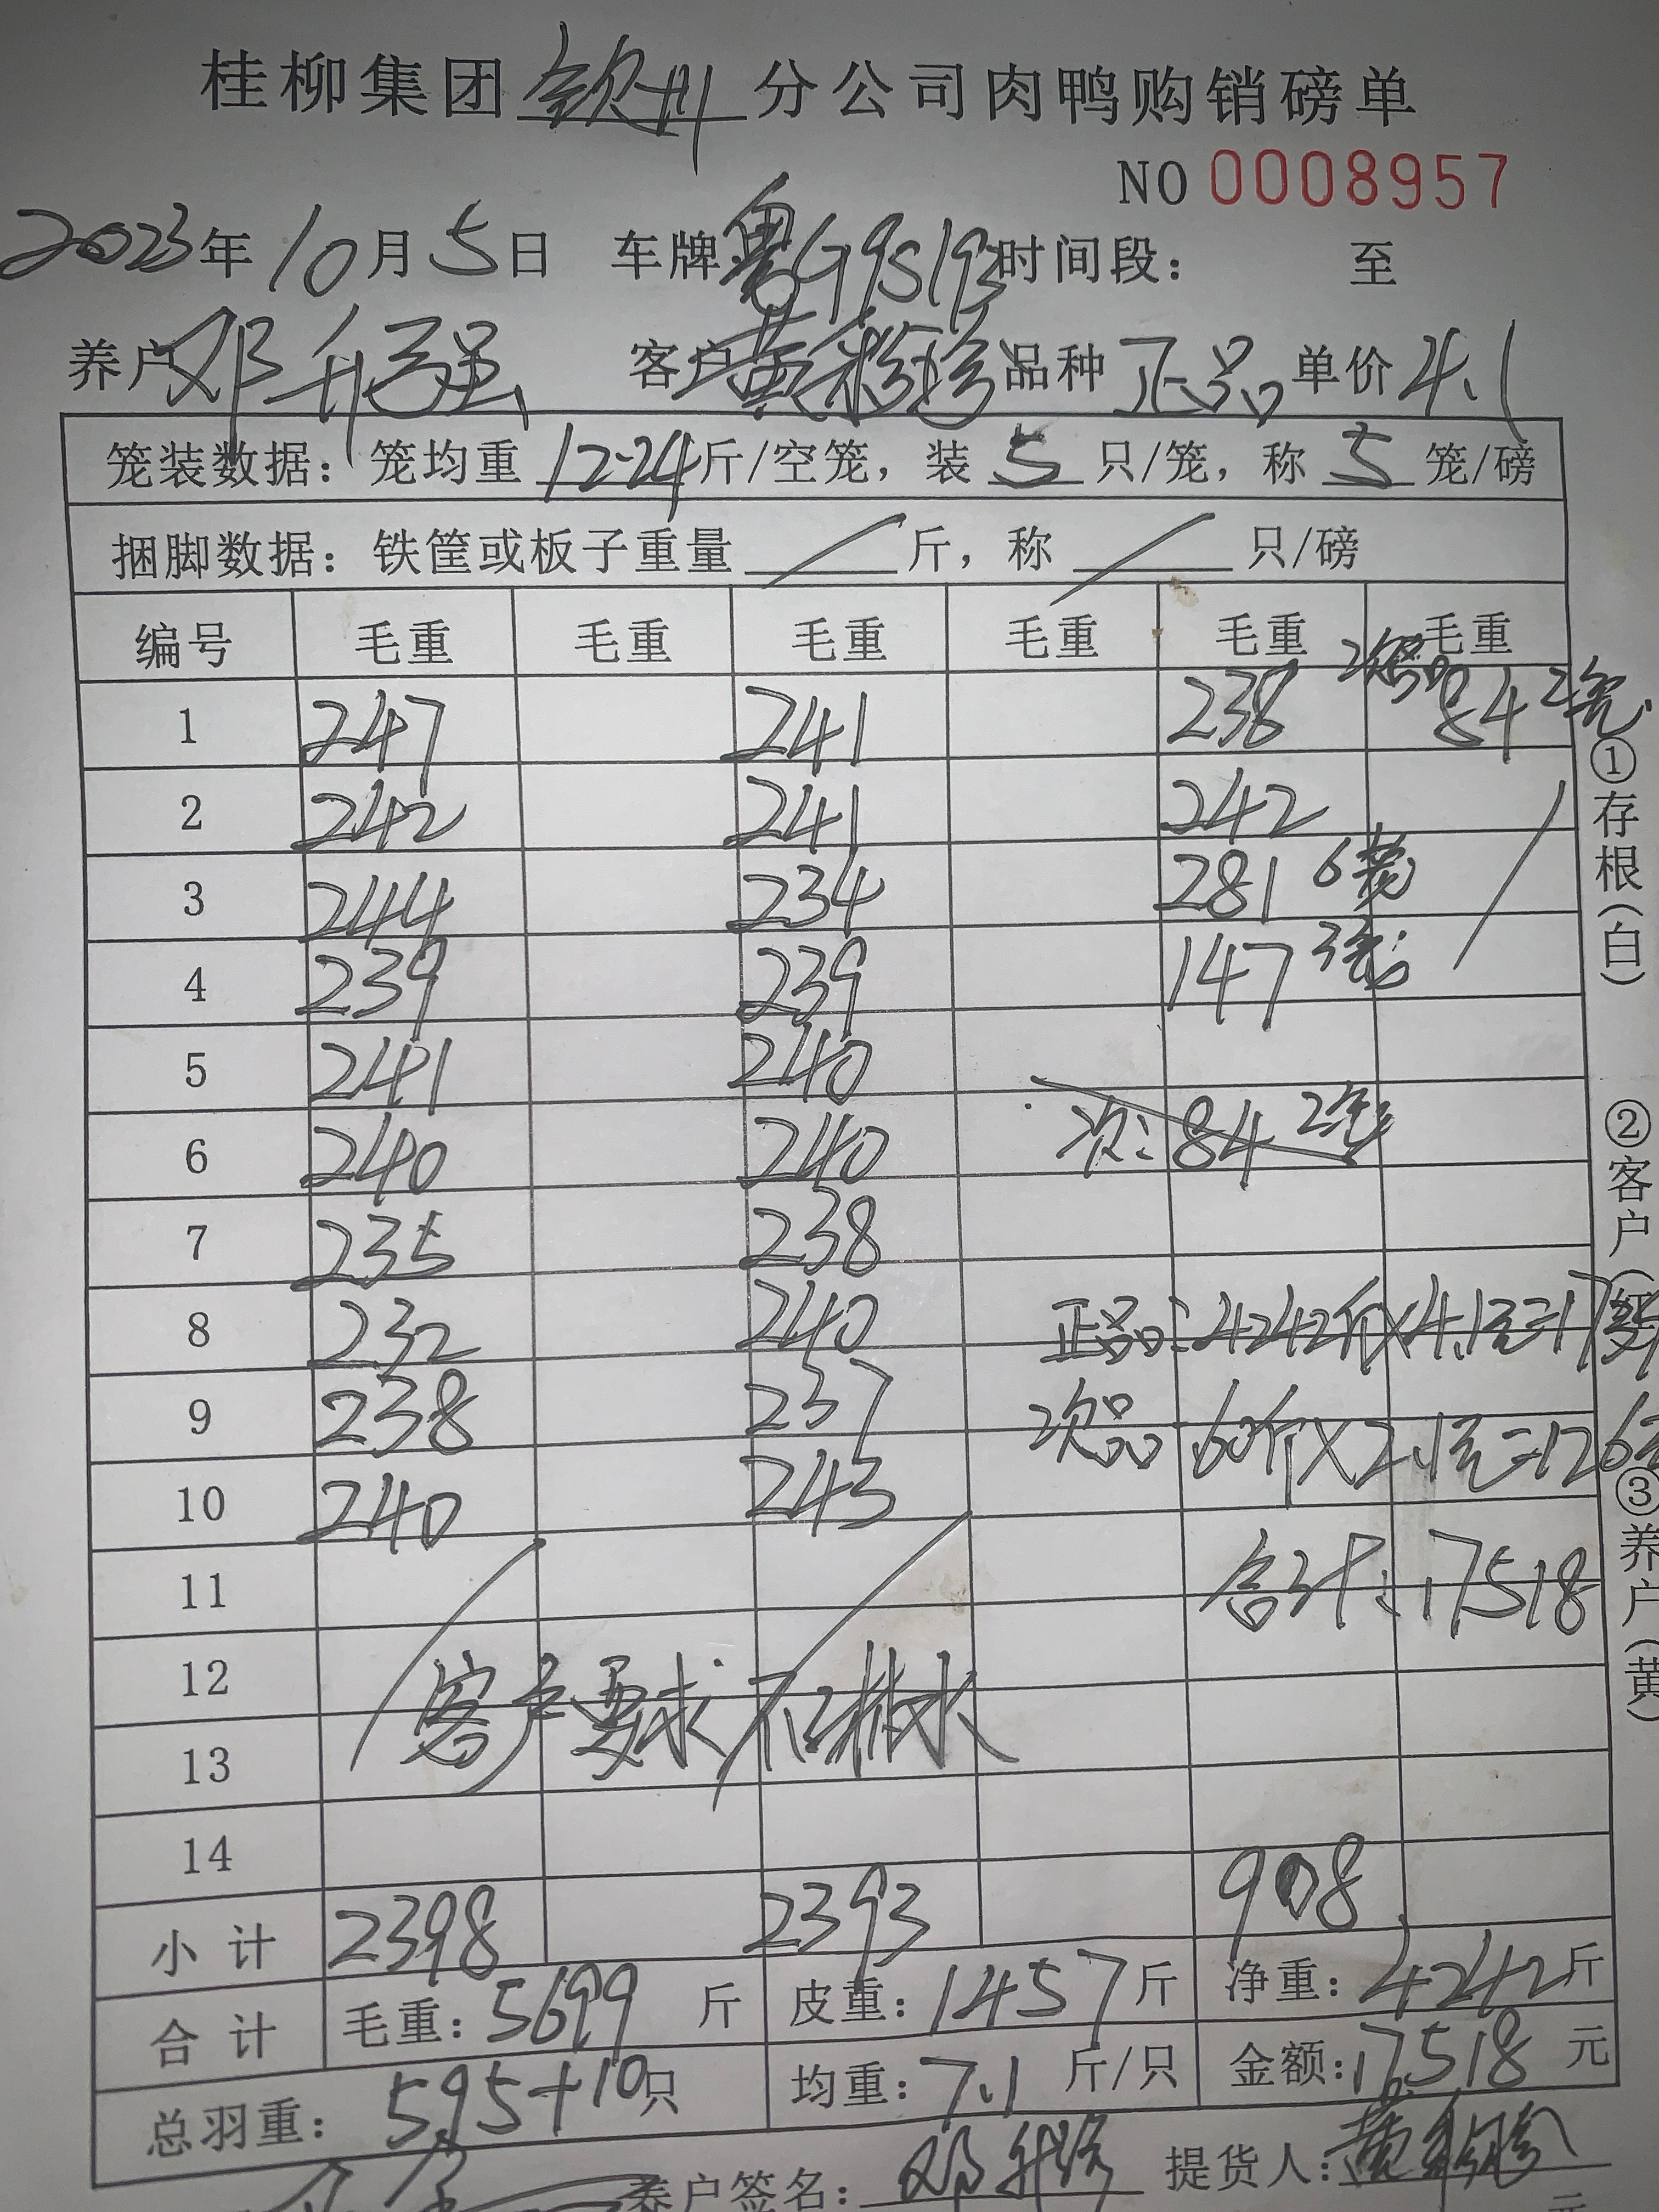 桂柳集团钦州分公司肉鸭购销磅单
NO 0008957
2023年10月5日 车牌:粤G9S193时间段: 至
养户邓升强 客户黄彩珍品种正品单价4.1
笼装数据: 笼均重12.24斤/空笼, 装5只/笼, 称5笼/磅
捆脚数据: 铁筐或板子重量/斤, 称/只/磅
编号 毛重 毛重 毛重 毛重 毛重 毛重
1 247 241 238 次品84 2笼
2 242 241 242
3 244 234 281 6笼
4 239 239 147 3笼
5 241 240
6 240 240 次:84 2笼
7 235 238
8 232 240 正品:4242斤×4.1元=173
9 238 237 次品:60斤×2.1元=126元
10 240 243
11 合计:17518
12 客户要求不排水
13
14
小计 2398 2393 908
合计 毛重:5699斤 皮重:1457斤 净重:4242斤
总羽重: 595+10只 均重:7.1斤/只 金额:17518元
养户签名: 邓升强 提货人:黄彩珍
元
①存根(白)
②客户(红)
③养户(黄)